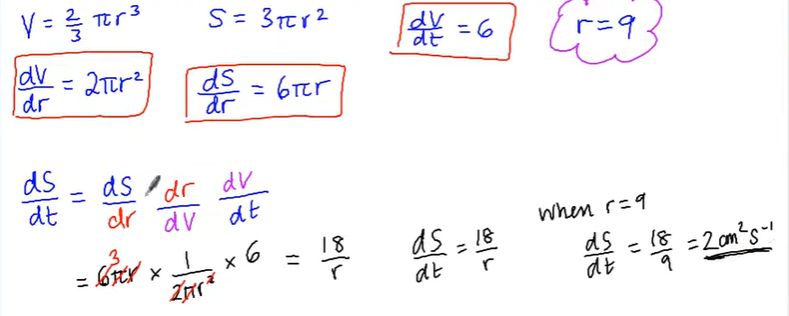 V = 2/3 πr³    S = 3πr²    dV/dt = 6    r = 9
dV/dr = 2πr²    dS/dr = 6πr
dS/dt = dS/dr dr/dV dV/dt
when r = 9
= 6πr 3 × 1/2πr² × 6 = 18/r    dS/dt = 18/r    dS/dt = 18/9 = 2cm²s⁻¹